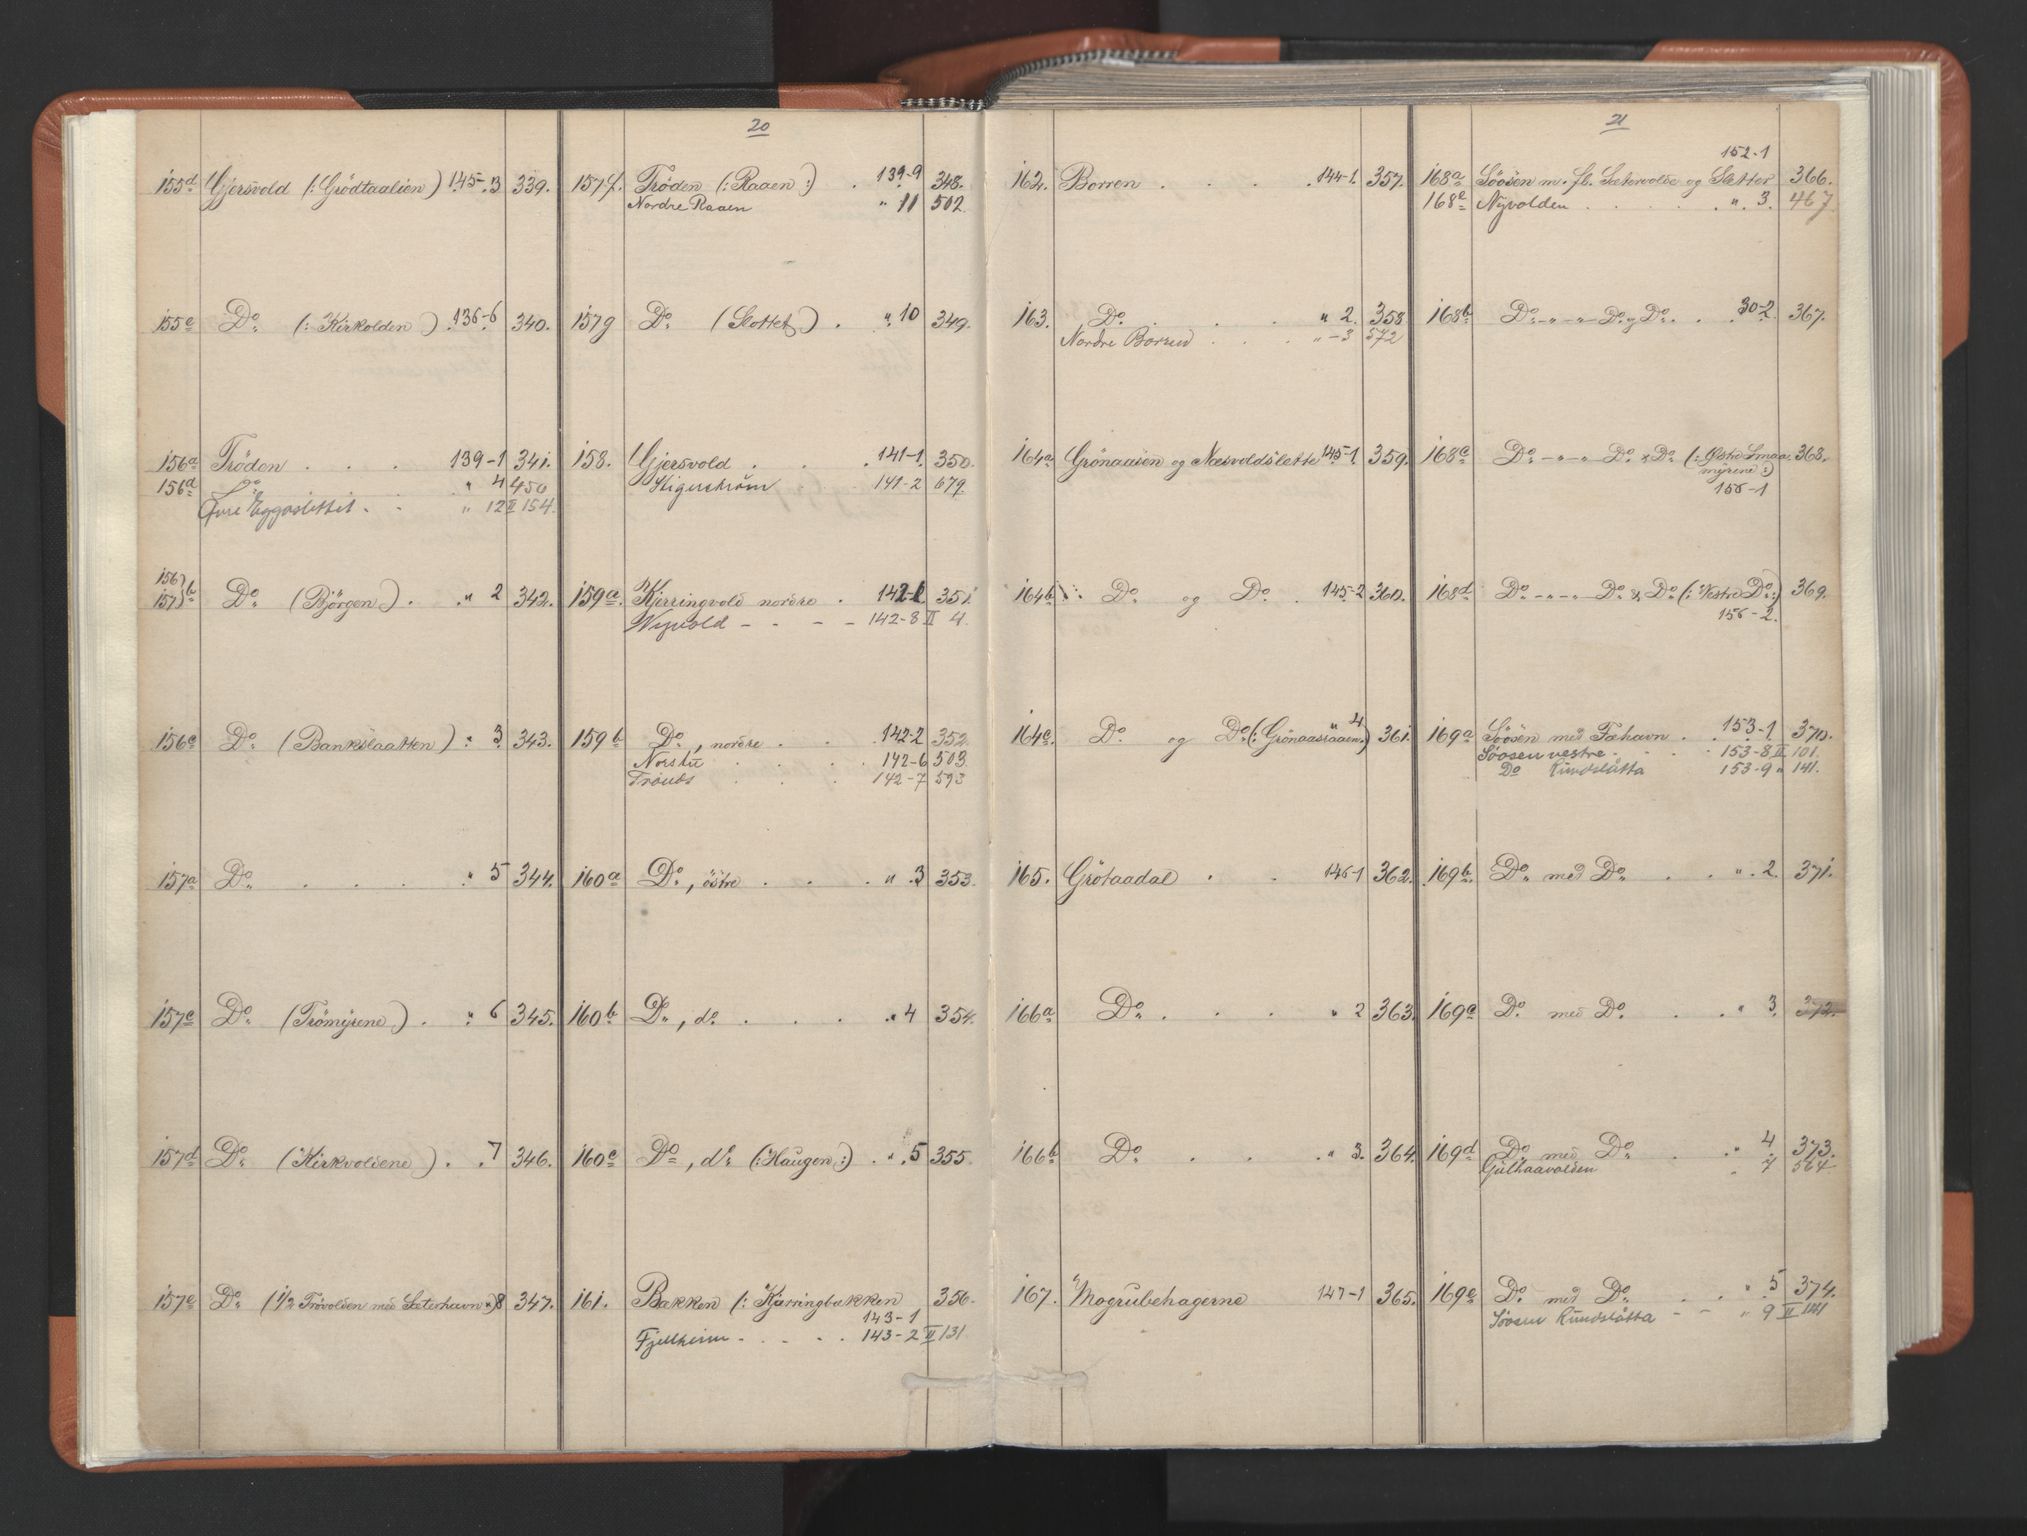 20
155d Gjersvold (: Grödtaalien) 145-3 339.
155e Do. (: Kirkolden) 136-6 340.
156a Tröden . . . 139-1 341.
156d Do " 4 450
Øvre Eggaslettet . . " 12 II 154.
156 157 b Do. (Björgen) . " 2 342.
156c Do. (Bankslaatten) " 3. 343.
157a Do. . . . " 5 344.
157c Do. (Trömyrene) . " 6 345.
157d Do. (Kirkvoldene) . " 7 346.
157e Do. (1/2 Trövolden med Sæterhavn) " 8 347.
157f. Tröden (: Raaen :) . 139-9 348.
Nordre Raaen " 11 502
157g Do. (Slottet) . " 10 349.
158. Gjersvold . . . 141-1. 350.
Stigerström . . 141-2 679.
159a. Kjerringvold nordre . 142-1 351.
Nyvold - - - - 142-8 II 4.
159b Do., nordre . . 142-2 352.
Norstu . . . 142-6 503
Trøuds . . . 142-7 593
160a Do., östre . . . " 3 353.
160b Do., do. . . . " 4 354.
160c Do., do. (: Haugen :) . " 5 355.
161. Bakken (: Kjærringbakken 356.
143-1
Fjellheim - . . . 143-2 II 131
21
162. Borren . . . . 144-1. 357.
163. Do. . . . . " 2. 358
Nordre Borren . . . " - 3 572
164a Grönaasen og Næsvoldslette 145-1. 359.
164b Do. og Do. . 145-2 360.
164c Do. og Do. (: Grönaasraaen :) " 4 361.
165. Grötaadal . . 146-1 362.
166a Do. . . . . " 2 363.
166b Do. . . . . " 3. 364.
167. Mogrubehagerne 147-1 365.
152-1
168a Söosen m. fl. Sætervolde og Sletter 366.
168e Nyvolden . . . . " 3. 467
168b Do. - " - " - Do. og Do. . . 30-2. 367.
168c Do. - " - " Do. & Do. (: Østre Smaa 368.
myrene :)
156-1
168d Do. - " - " Do. & Do. (: Vestre Do. :) 369.
156-2.
169a Söosen med Fæhavn . . 153-1 370.
Søosen vestre . . . 153-8 II 101.
Do Rundslåtta 153-9 " 141.
169b. Do. med Do. . . " 2. 371.
169c Do. med Do. . . " 3. 372.
169d Do. med Do. . . " 4 373.
Gulhaavolden " 7 564
169e Do. med Do. . . " 5 374.
Søosen Rundslåtta - - " 9 II 141